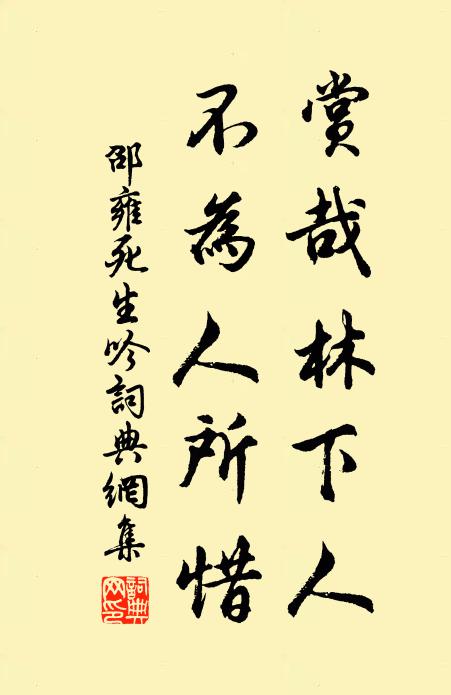 賞哉林下人
不為人所惜
邵雍死生吟詞典網集
詞典
網印